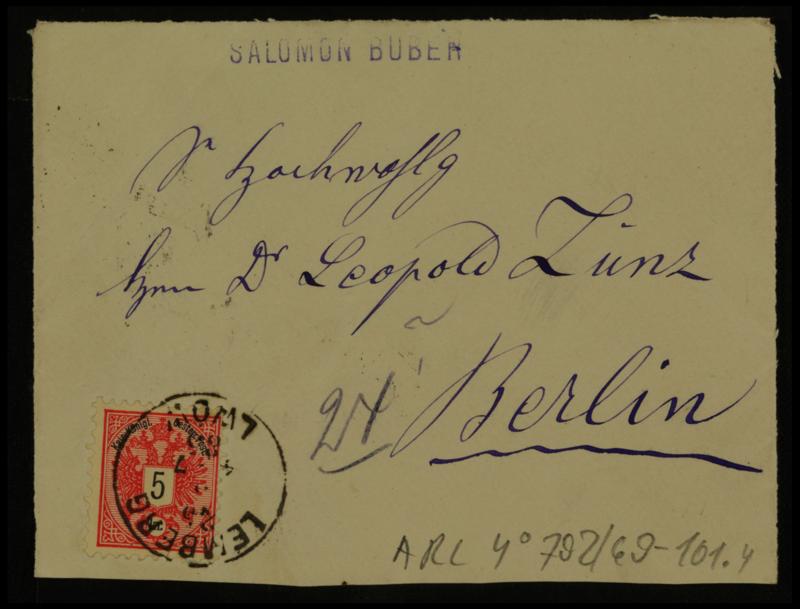 SALOMON BUBER
Sr Hochwohlg
Herrn Dr Leopold Zunz
Berlin
LEMBERG
LWÓW
5
ARC 4° 792/G9-101.4